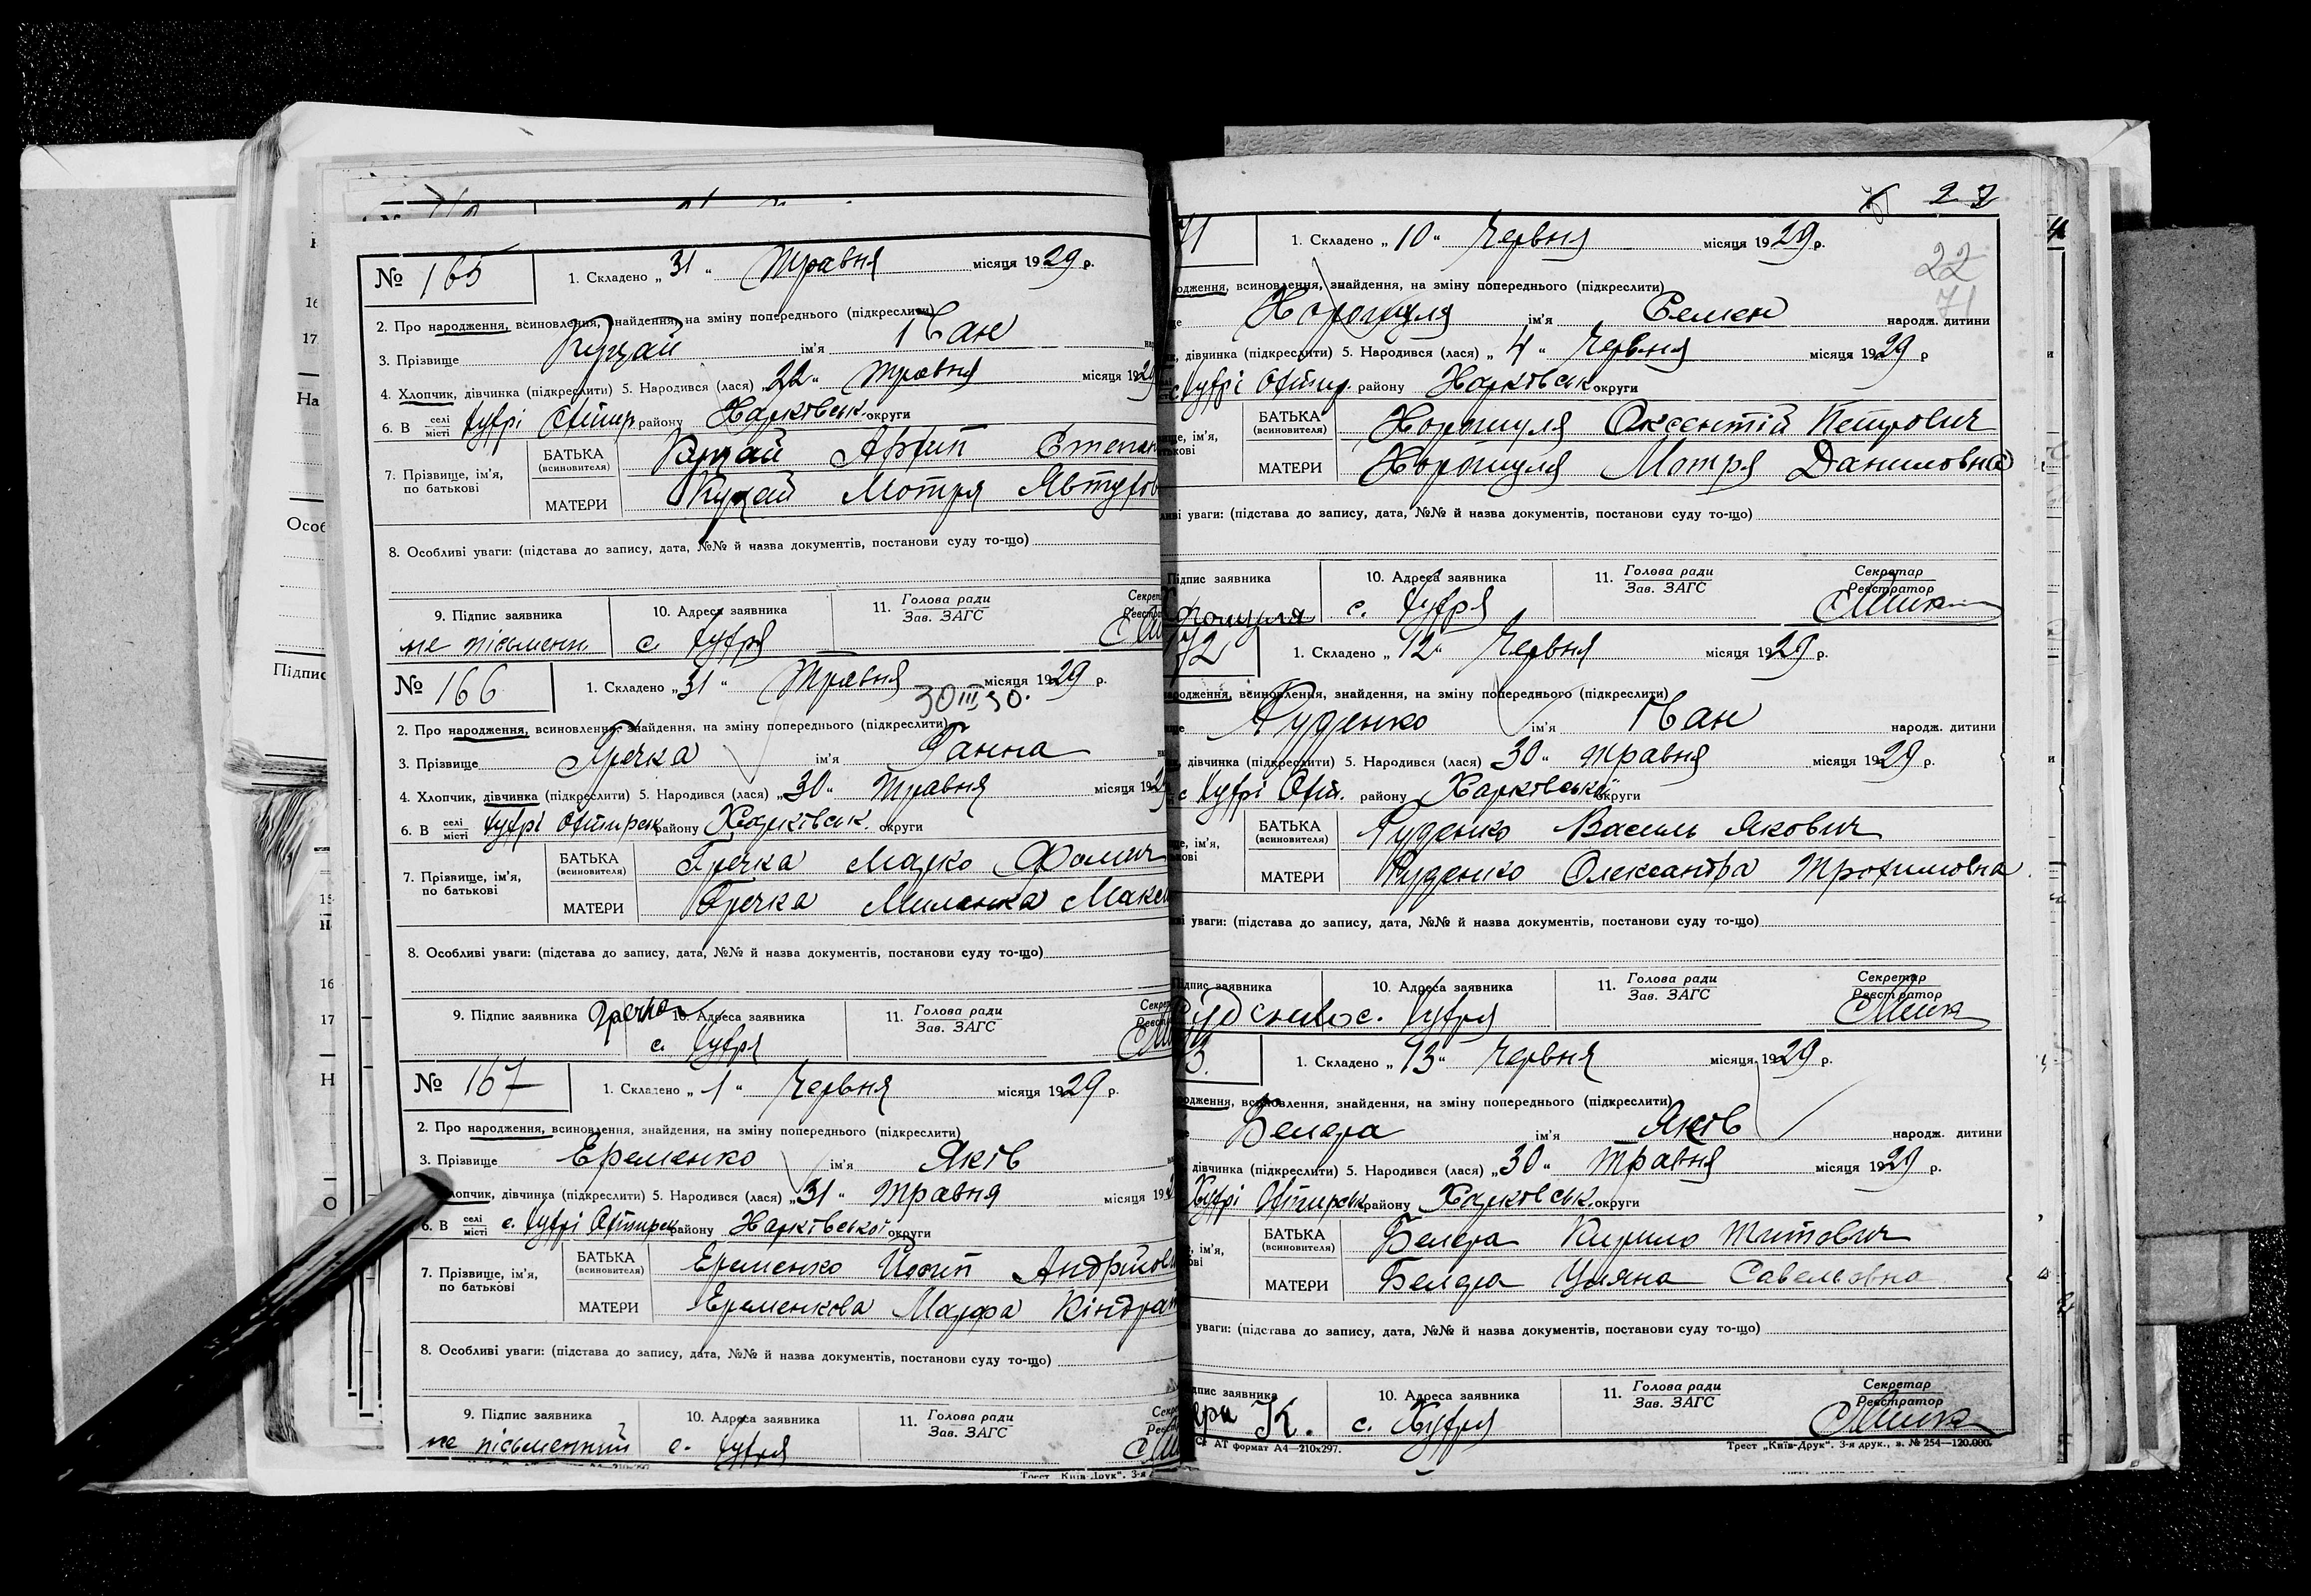 № 165
1. Складено „ 31 “ Травня місяця 1929 р.
2. Про народження, всиновлення, знайдення, на зміну попереднього (підкреслити)
3. Прізвище Куцай ім'я Іван
4. Хлопчик, дівчинка (підкреслити) 5. Народився (лася) „ 22 “ Травня місяця 1929
6. В селі місті Хухрі Охтир. району Харківськ. округи
7. Прізвище, ім'я, по батькові
БАТЬКА (всиновителя) Куцай Архип Степан
МАТЕРИ Куцай Мотря Явтухов
8. Особливі уваги: (підстава до запису, дата, №№ й назва документів, постанови суду то-що)
9. Підпис заявника 10. Адреса заявника 11. Голова ради Зав. ЗАГС
не письменн. с. Хухря
№ 166
1. Складено „ 31 “ Травня місяця 1929 р.
30 III 30.
2. Про народження, всиновлення, знайдення, на зміну попереднього (підкреслити)
3. Прізвище Гречка ім'я Ганна
4. Хлопчик, дівчинка (підкреслити) 5. Народився (лася) „ 30 “ Травня місяця 192
6. В селі місті Хухрі Охтирськ району Харківськ. округи
7. Прізвище, ім'я, по батькові
БАТЬКА (всиновителя) Гречка Марко Фомич
МАТЕРИ Гречка Миланка Макси
8. Особливі уваги: (підстава до запису, дата, №№ й назва документів, постанови суду то-що)
9. Підпис заявника Гречка 10. Адреса заявника 11. Голова ради Зав. ЗАГС
с. Хухря
№ 167
1. Складено „ 1 “ Червня місяця 1929 р.
2. Про народження, всиновлення, знайдення, на зміну попереднього (підкреслити)
3. Прізвище Еременко ім'я Яків
лопчик, дівчинка (підкреслити) 5. Народився (лася) „ 31 “ Травня місяця 192
6. В селі місті с. Хухрі Охтирськ району Харківської округи
7. Прізвище, ім'я, по батькові
БАТЬКА (всиновителя) Еременко Йосип Андрійови
МАТЕРИ Еременкова Марфа Кіндрат
8. Особливі уваги: (підстава до запису, дата, №№ й назва документів, постанови суду то-що)
9. Підпис заявника 10. Адреса заявника 11. Голова ради Зав. ЗАГС
не письменний с. Хухря
22
71
71
1. Складено „ 10 “ Червня місяця 1929 р.
одження, всиновлення, знайдення, на зміну попереднього (підкреслити)
Хорошуля ім'я Семен народж. дитини
дівчинка (підкреслити) 5. Народився (лася) „ 4 “ Червня місяця 1929 р
с Хухрі Охтир. району Харківськ округи
БАТЬКА (всиновителя) Хорошуля Оксентій Петрович
МАТЕРИ Хорошуля Мотря Даниловна
уваги: (підстава до запису, дата, №№ й назва документів, постанови суду то-що)
Підпис заявника 10. Адреса заявника 11. Голова ради Зав. ЗАГС Секретар Реєстратор
Хорошуля с. Хухря
72
1. Складено „ 12 “ Червня місяця 1929 р.
ародження, всиновлення, знайдення, на зміну попереднього (підкреслити)
Руденко ім'я Іван народж. дитини
дівчинка (підкреслити) 5. Народився (лася) „ 30 “ Травня місяця 1929 р.
с Хухрі Охти. району Харківської округи
БАТЬКА (всиновителя) Руденко Василь Якович
МАТЕРИ Руденко Олександра Трохимовна
уваги: (підстава до запису, дата, №№ й назва документів, постанови суду то-що)
Підпис заявника 10. Адреса заявника 11. Голова ради Зав. ЗАГС Секретар Реєстратор
Руденко с. Хухря
73.
1. Складено „ 13 “ Червня місяця 1929 р.
одження, всиновлення, знайдення, на зміну попереднього (підкреслити)
Белера ім'я Яків народж. дитини
дівчинка (підкреслити) 5. Народився (лася) „ 30 “ Травня місяця 1929 р.
Хухрі Охтирськ району Харківськ. округи
БАТЬКА (всиновителя) Белера Кирило Титович
МАТЕРИ Белера Уляна Савельовна
уваги: (підстава до запису, дата, №№ й назва документів, постанови суду то-що)
дпис заявника 10. Адреса заявника 11. Голова ради Зав. ЗАГС Секретар Реєстратор
ера К. с. Хухря
АТ формат А4—210х297. Трест „Київ-Друк“. 3-я друк., з. № 254—120.000.